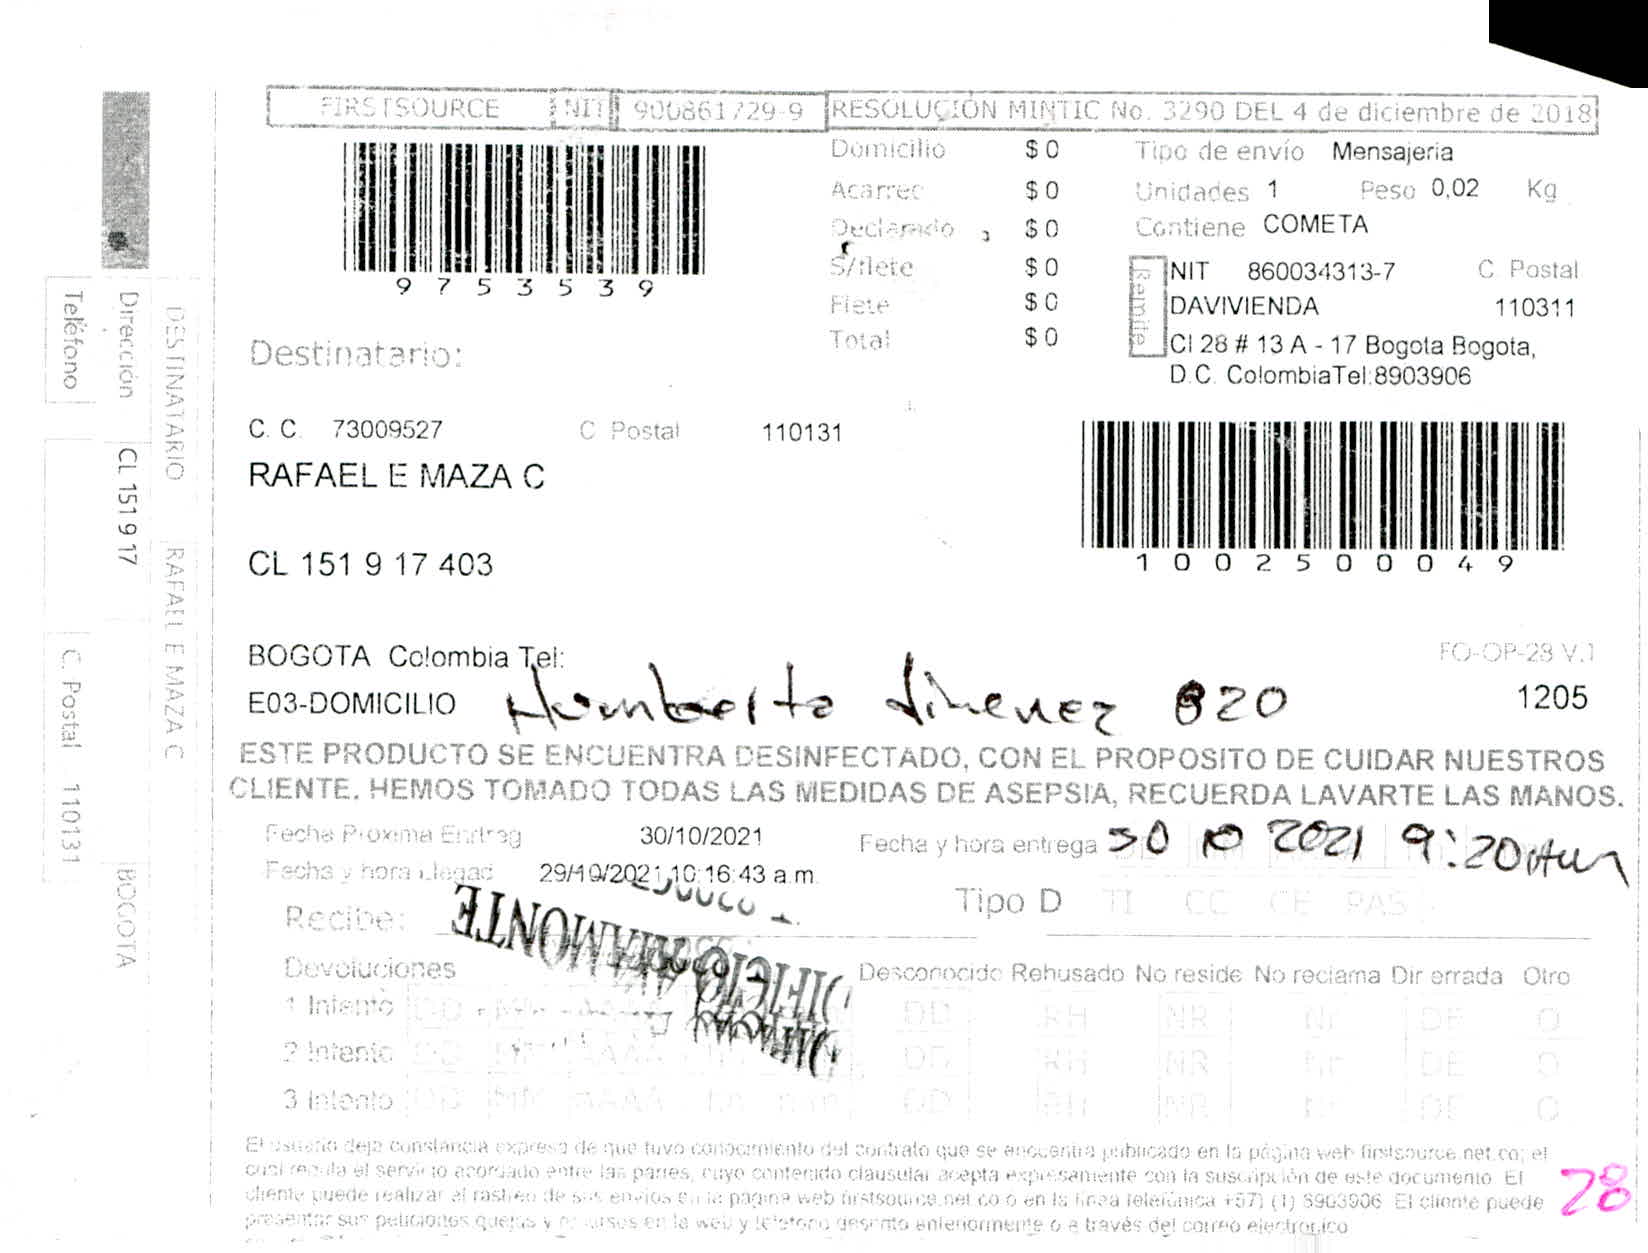 FIRSTSOURCE NIT 900861729-9 RESOLUCIÓN MINTIC No. 3290 DEL 4 de diciembre de 2018
9753539
Domicilio $ 0
Acarreo $ 0
Declarado $ 0
S/flete $ 0
Flete $ 0
Total $ 0
Tipo de envío Mensajeria
Unidades 1 Peso 0,02 Kg
Contiene COMETA
Remite
NIT 860034313-7 C. Postal
DAVIVIENDA 110311
Cl 28 # 13 A - 17 Bogota Bogota,
D.C. ColombiaTel:8903906
Destinatario:
C. C. 73009527 C Postal 110131
RAFAEL E MAZA C
CL 151 9 17 403
1002500049
BOGOTA Colombia Tel:
FO-OP-28 V.1
E03-DOMICILIO Humberto Jimenez 820 1205
ESTE PRODUCTO SE ENCUENTRA DESINFECTADO, CON EL PROPOSITO DE CUIDAR NUESTROS
CLIENTE. HEMOS TOMADO TODAS LAS MEDIDAS DE ASEPSIA, RECUERDA LAVARTE LAS MANOS.
Fecha Proxima Entreg 30/10/2021 Fecha y hora entrega 30 10 2021 9:20
Fecha y hora Llegad 29/10/2021 10:16:43 a.m.
Recibe: Tipo D TI CC CE PAS
Devoluciones Desconocido Rehusado No reside No reclama Dir errada Otro
1 Intento DD RH NR Nr DE O
2 Intento DD RH NR Nr DE O
3 Intento DD MM AAAA DD RH NR Nr DE O
El usuario deja constancia expresa de que tuvo conocimiento del contrato que se encuentra publicado en la página web firstsource.net.co; el
cual regula el servicio acordado entre las partes, cuyo contenido clausular acepta expresamente con la suscripción de este documento. El
cliente puede realizar el rastreo de sus envíos en la pagina web firstsource.net.co o en la linea telefónica +57) (1) 8903906 El cliente puede
presentar sus peticiones quejas y recursos en la web y telefono descrito anteriormente o a través del correo electronico
28
DESTINATARIO RAFAEL E MAZA C
Dirección CL 151 9 17 BOGOTA
Teléfono C. Postal 110131